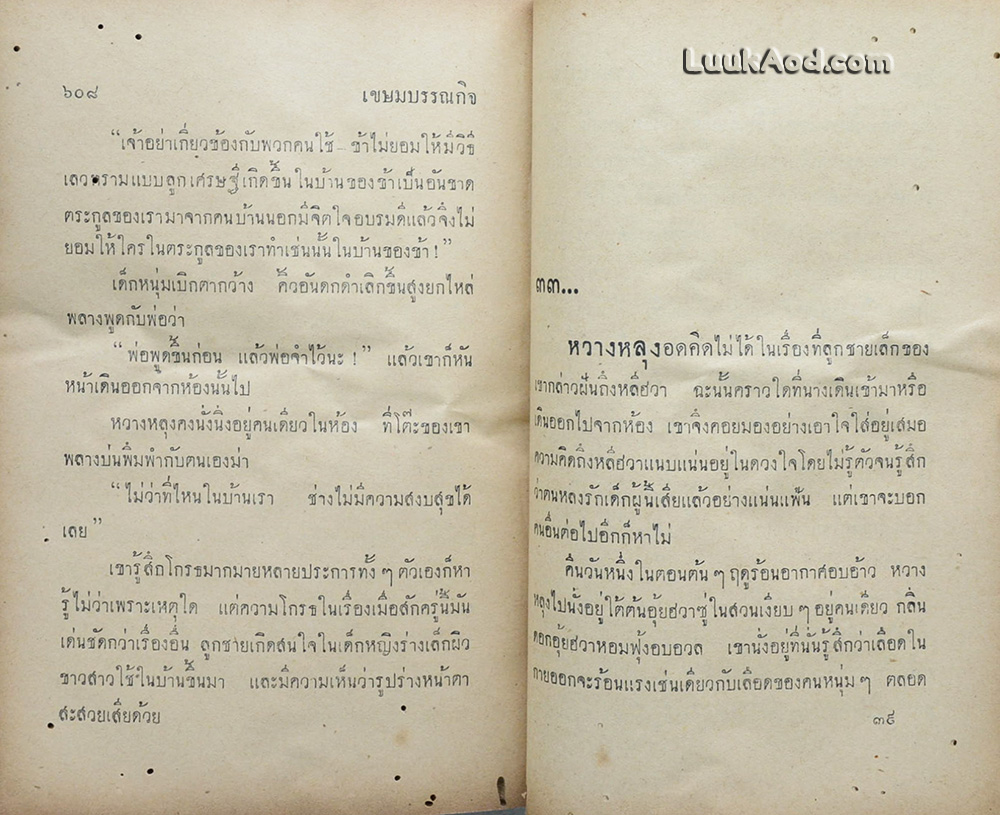 ๖๐๘ เขษมบรรณกิจ
“เจ้าอย่าเกี่ยวข้องกับพวกคนใช้ ข้าไม่ยอมให้มีวิธี
เลวทรามแบบลูกเศรษฐีเกิดขึ้นในบ้านของข้าเป็นอันขาด
ตระกูลของเรามาจากคนบ้านนอกมีจิตใจอบรมดีแล้วจึงไม่
ยอมให้ใครในตระกูลของเราทำเช่นนั้นในบ้านของข้า!”
เด็กหนุ่มเบิกตากว้าง คิ้วอันดกดำเลิกขึ้นสูงยกไหล่
พลางพูดกับพ่อว่า
“พ่อพูดขึ้นก่อน แล้วพ่อจำไว้นะ!” แล้วเขาก็หัน
หน้าเดินออกจากห้องนั้นไป
หวางหลุงคงนั่งนิ่งอยู่คนเดียวในห้อง ที่โต๊ะของเขา
พลางบ่นพึมพำกับตนเองม่า
“ไม่ว่าที่ไหนในบ้านเรา ช่างไม่มีความสงบสุขได้
เลย”
เขารู้สึกโกรธมากมายหลายประการทั้ง ๆ ตัวเองก็หา
รู้ไม่ว่าเพราะเหตุใด แต่ความโกรธในเรื่องเมื่อสักครู่นี้มัน
เด่นชัดกว่าเรื่องอื่น ลูกชายเกิดสนใจในเด็กหญิงร่างเล็กผิว
ขาวสาวใช้ในบ้านขึ้นมา และมีความเห็นว่ารูปร่างหน้าตา
สะสวยเสียด้วย
LuukAod.com
๓๓...
หวางหลุงอดคิดไม่ได้ในเรื่องที่ลูกชายเล็กของ
เขากล่าวฝันถึงหลีฮวา ฉะนั้นคราวใดที่นางเดินเข้ามาหรือ
เดินออกไปจากห้อง เขาจึงคอยมองอย่างเอาใจใส่อยู่เสมอ
ความคิดถึงหลีฮวาแนบแน่นอยู่ในดวงใจโดยไม่รู้ตัวจนรู้สึก
ว่าตนหลงรักเด็กผู้นี้เสียแล้วอย่างแน่นแฟ้น แต่เขาจะบอก
คนอื่นต่อไปอีกก็หาไม่
คืนวันหนึ่งในตอนต้น ๆ ฤดูร้อนอากาศอบอ้าว หวาง
หลุงไปนั่งอยู่ใต้ต้นอุ้ยฮวาซู่ในสวนเงียบ ๆ อยู่คนเดียว กลิ่น
ดอกอุ้ยฮวาหอมฟุ้งอบอวล เขานั่งอยู่ที่นั่นรู้สึกว่าเลือดใน
กายออกจะร้อนแรงเช่นเดียวกับเลือดของคนหนุ่ม ๆ ตลอด
๓๙